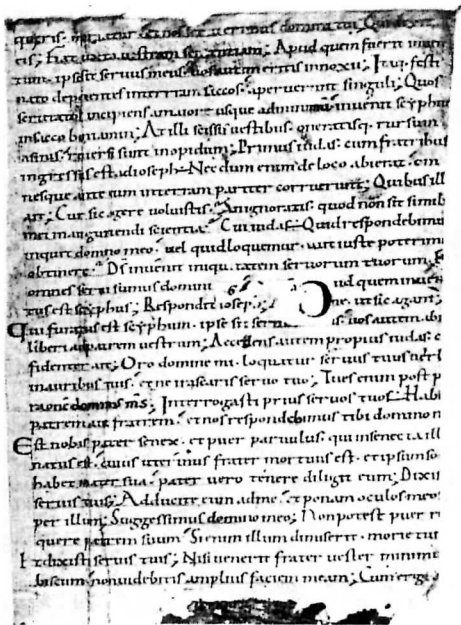 queris. moriatur. et nos erimus servi domini tui; Qui dixit
eis; Fiat iuxta vestram sententiam; Apud quem fuerit inven
tum. ipse sit servus meus. vos autem eritis innoxii; Itaq; festi
nato deponentes in terram saccos. aperuerunt singuli; Quos
scrutatus incipiens a maiore usque ad minimum. invenit scyphum
in sacco beniamin; At illi scissis vestibus. oneratisq; rursum
asinis. reversi sunt in opidum; Primus iudas. cum fratribus
ingressus est ad ioseph. Nec dum enim de loco abierat. om
nesque ante eum in terram pariter corruerunt; Quibus ill
ait; Cur sic agere voluistis. An ignoratis. quod non sit simil
mei in augurandi scientia; Cui iudas. Quid respondebimus
inquit domino meo. vel quid loquemur. aut iuste poterim
obtinere. Ds invenit iniquitatem servorum tuorum. E
omnes servi sumus domini ud quem inven
tus est scyphus; Respondit ioseph; ne ut sic agam;
Qui furatus est scyphum. ipse sit servus s. vos autem abi
liberi ad patrem vestrum; Accedens autem propius iudas. c
fidenter ait; Oro domine mi. loquatur servus tuus verb
in auribus tuis. et ne irascaris servo tuo; Tu es enim post p
raonem dominus ms; Interrogasti prius servos tuos. Habe
patrem aut fratrem. et nos respondebimus tibi domino m
Est nobis pater senex. et puer parvulus. qui in senecta ill
natus est. cuius uterinus frater mortuus est. et ipsum so
habet mater sua. pater vero tenere diligit eum; Dixis
servis tuis; Adducite eum ad me. et ponam oculos meos
per illum; Suggessimus domino meo; Non potest puer re
quere patrem suum. Si enim illum dimiserit. morietur
Et dixisti servis tuis; Nisi venerit frater vester minim
biscum. non videbitis amplius faciem meam; Cum ergo